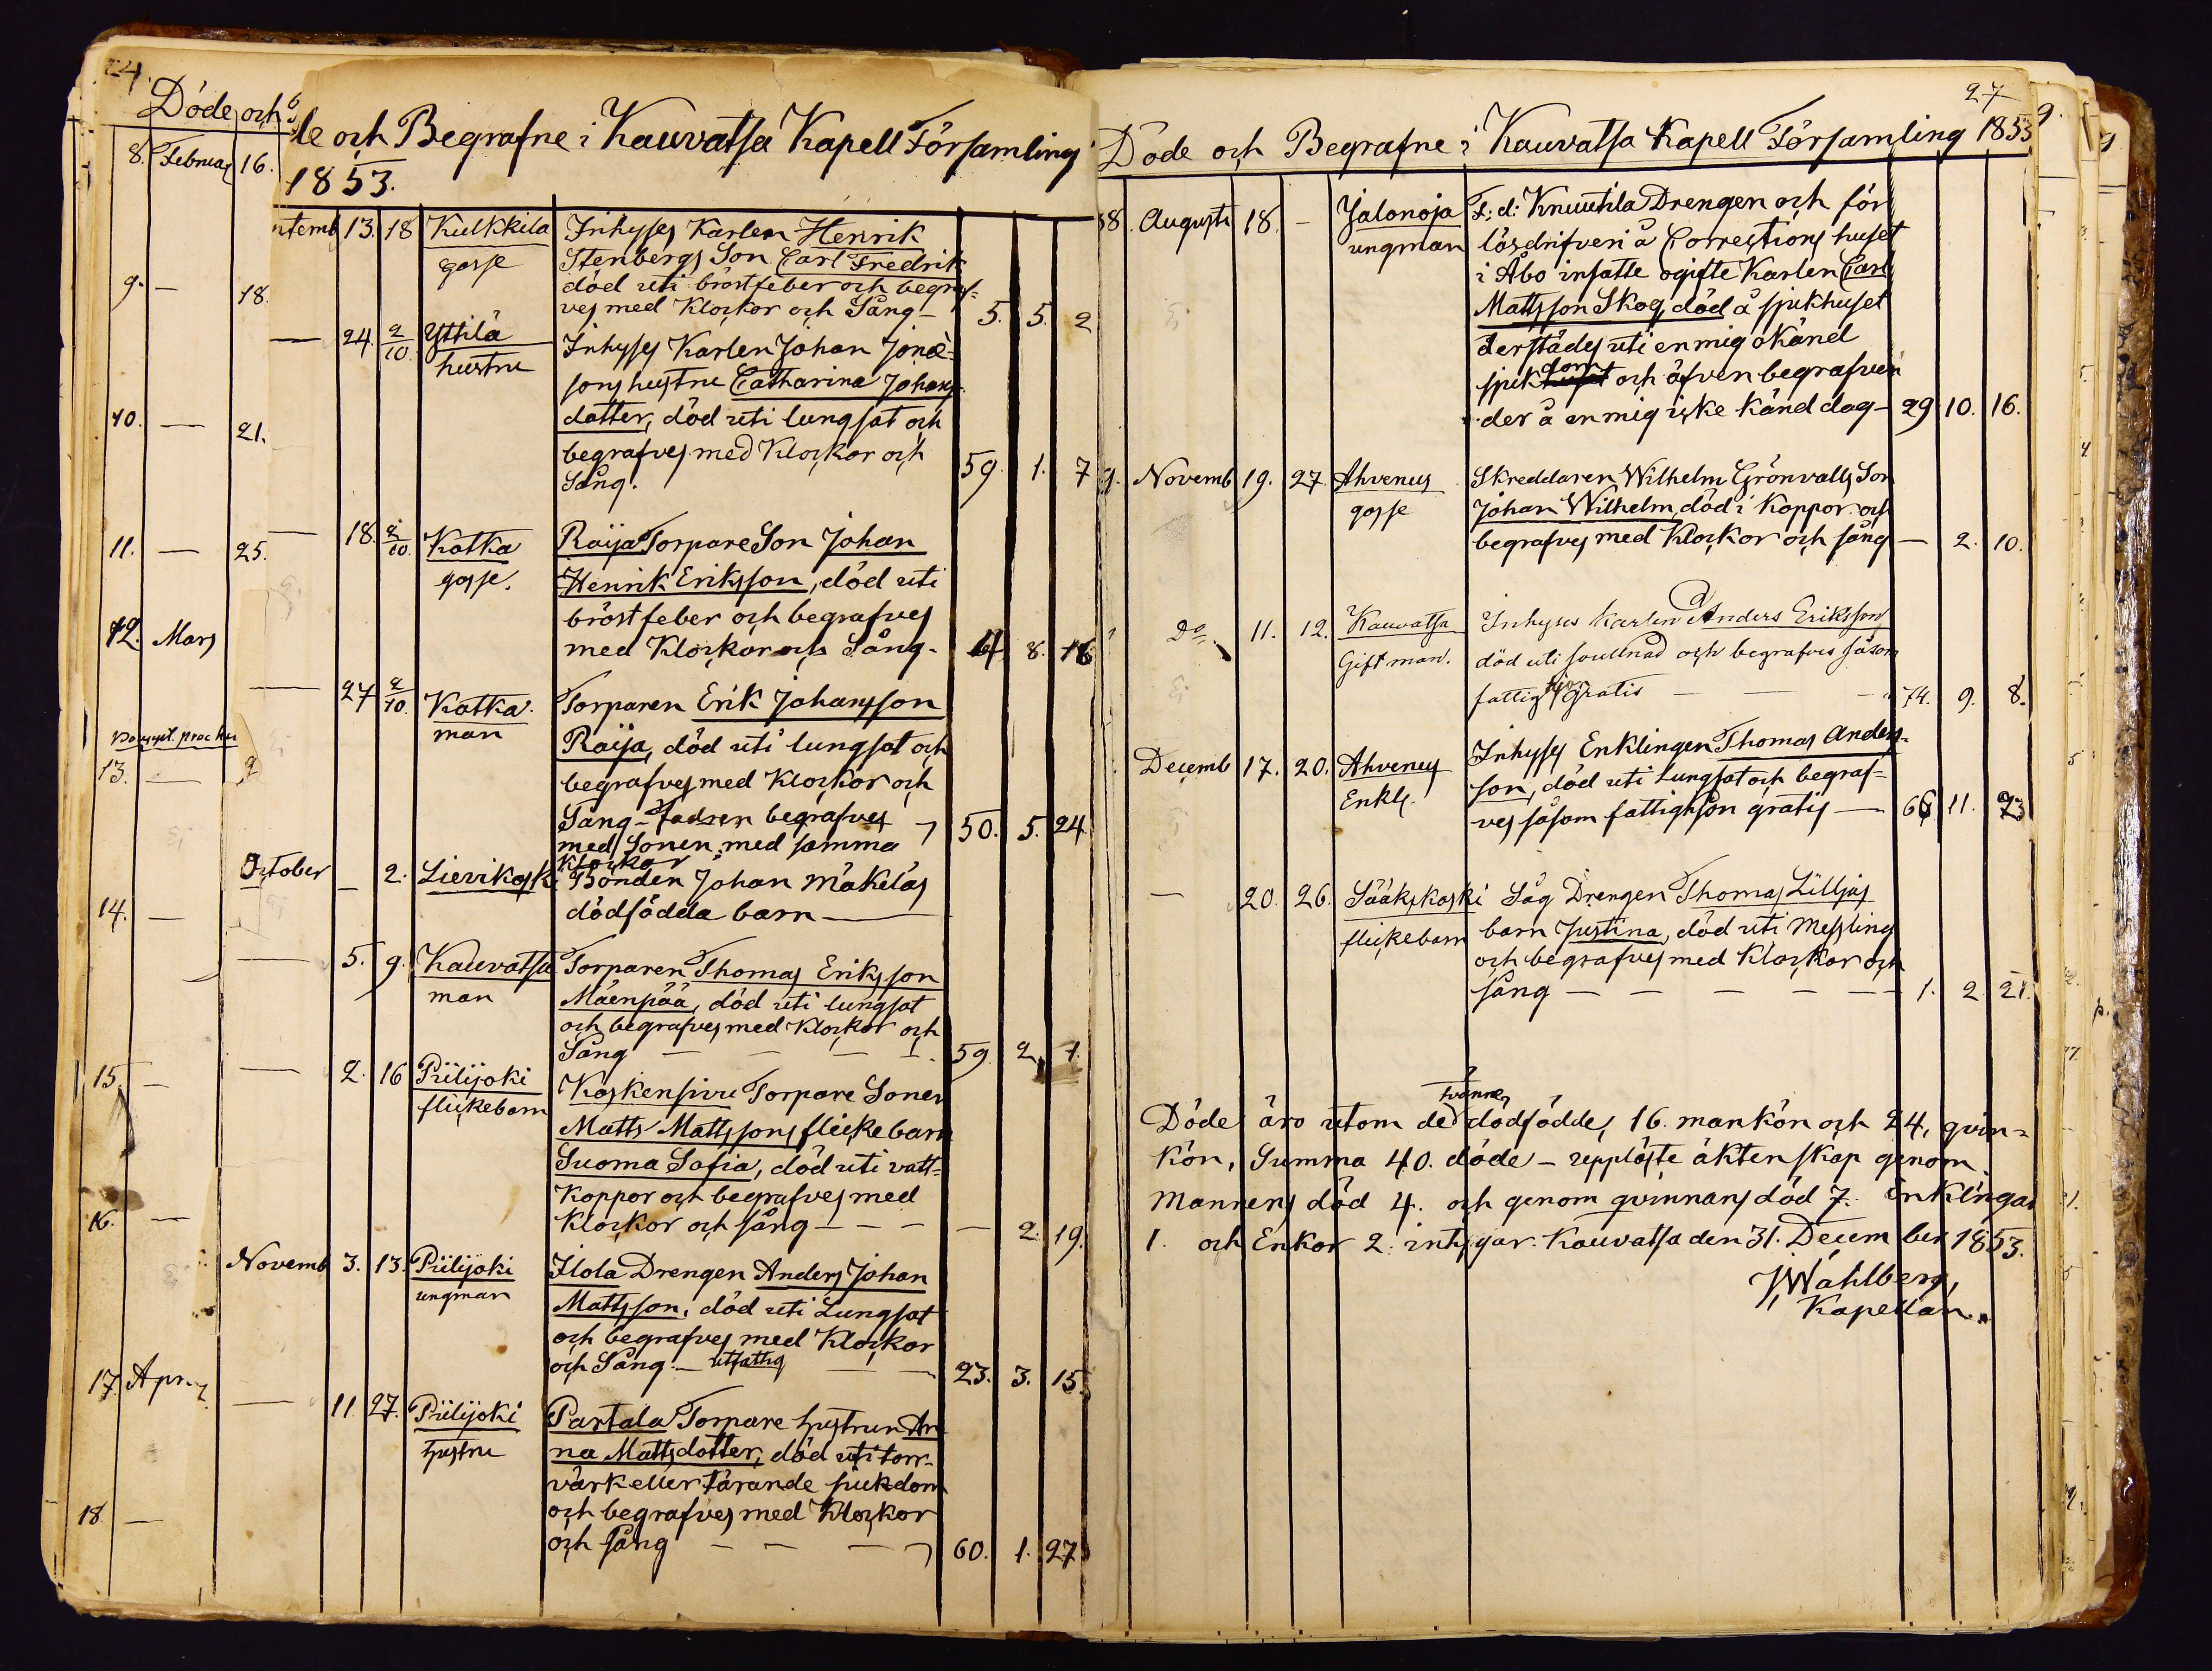 24.
Döde och
8. Februar 16.
9. — 18.
10. — 21.
11. — 25.
12. Mars
13. —
14. —
15. —
16. —
17. Apr
18. —
de och Begrafne i Kauvatsa Kapell Församling
1853.
temb 13. 18 Kulkkila gosse Inhyses Karlen Henrik
Stenbergs Son Carl Fredrik
död uti bröstfeber och begraf-
ves med Klockor och Sång — 5. 5. 2
— 24. 2/10. Yttilä hustru Inhyses Karlen Johan Jonæ-
sons hustru Catharina Johans-
dotter, död uti lungsot och
begrafves med Klockor och
Sång. 59. 1. 7
— 18. 2/10. Kotka gosse. Raija Torpare Son Johan
Henrik Eriksson, död uti
bröstfeber och begrafves
med Klockor och Sång. 8. 16
— 27 2/10. Kotka man Torparen Erik Johansson
Raija, död uti lungsot och
begrafves med Klockor och
Sång — fadren begrafves
med Sonen med samma 50. 5. 24.
Klockor
October — 2. Lievikoski Bonden Johan Mäkeläs
dödfödda barn —
— 5. 9. Kauvatsa man Torparen Thomas Eriksson
Mäenpää, död uti lungsot
och begrafves med Klockor och
Sång — — — — 59. 2. 1.
— 2. 16 Piilijoki flickebarn Koskensivu Torpare Sonen
Matts Mattssons flickebarn
Suoma Sofia, död uti vatt-
koppor och begrafves med
Klockor och sång — — — — 2. 19.
Novemb 3. 13. Piilijoki ungman Ilola Drengen Anders Johan
Mattsson, död uti Lungsot
och begrafves med Klockor
och Sång. — utfattig — 23. 3. 15.
— 11. 27. Piilijoki hustru Partala Torpare hustrun An
na Mattsdotter, död uti torr-
värk eller tärande sjukdom
och begrafves med Klockor
och sång — — — 60. 1. 27
27
Döde och Begrafne i Kauvatsa Kapell Församling 1853
38. Augusti 18. — Jalonoja ungman F: d: Knuutila Drengen och för
lösdrifveri å Corrections huset
i Åbo insatte ogifte Karlen Carl
Mattsson Skog, död å sjukhuset
derstädes uti en mig okänd
sjukdom och äfven begrafven
der å en mig icke känd dag — 29 10. 16.
Novemb 19. 27. Ahvenus gosse Skreddaren Wilhelm Grönvalls Son
Johan Wilhelm, död i Koppor och
begrafves med Klockor och sång — 2. 10.
Do 11. 12. Kauvatsa Gift man. Inhyses karlen Anders Eriksson
död uti svullnad och begrafves såsom
fattighjon gratis — — — 74. 9. 8.
Decemb 17. 20. Ahvenus Enkl. Inhyses Enklingen Thomas Anders-
son, död uti Lungsot och begraf-
ves såsom fattighjon gratis — 66 11. 23
— 20. 26. Sääkskoski flickebarn Såg Drengen Thomas Lilljas
barn Justina, död uti Messling
och begrafves med Klockor och
sång — — — — — 1. 2. 21.
Döde äro utom de tvänne dödfödde, 16. mankön och 24, qvin-
kön, Summa 40. döde — upplöste äktenskap genom
Mannens död 4. och genom qvinnans död 7. Enklingar
1. och Enkor 2. intygar. Kauvatsa den 31. December 1853.
J. Wahlberg,
Kapellan.